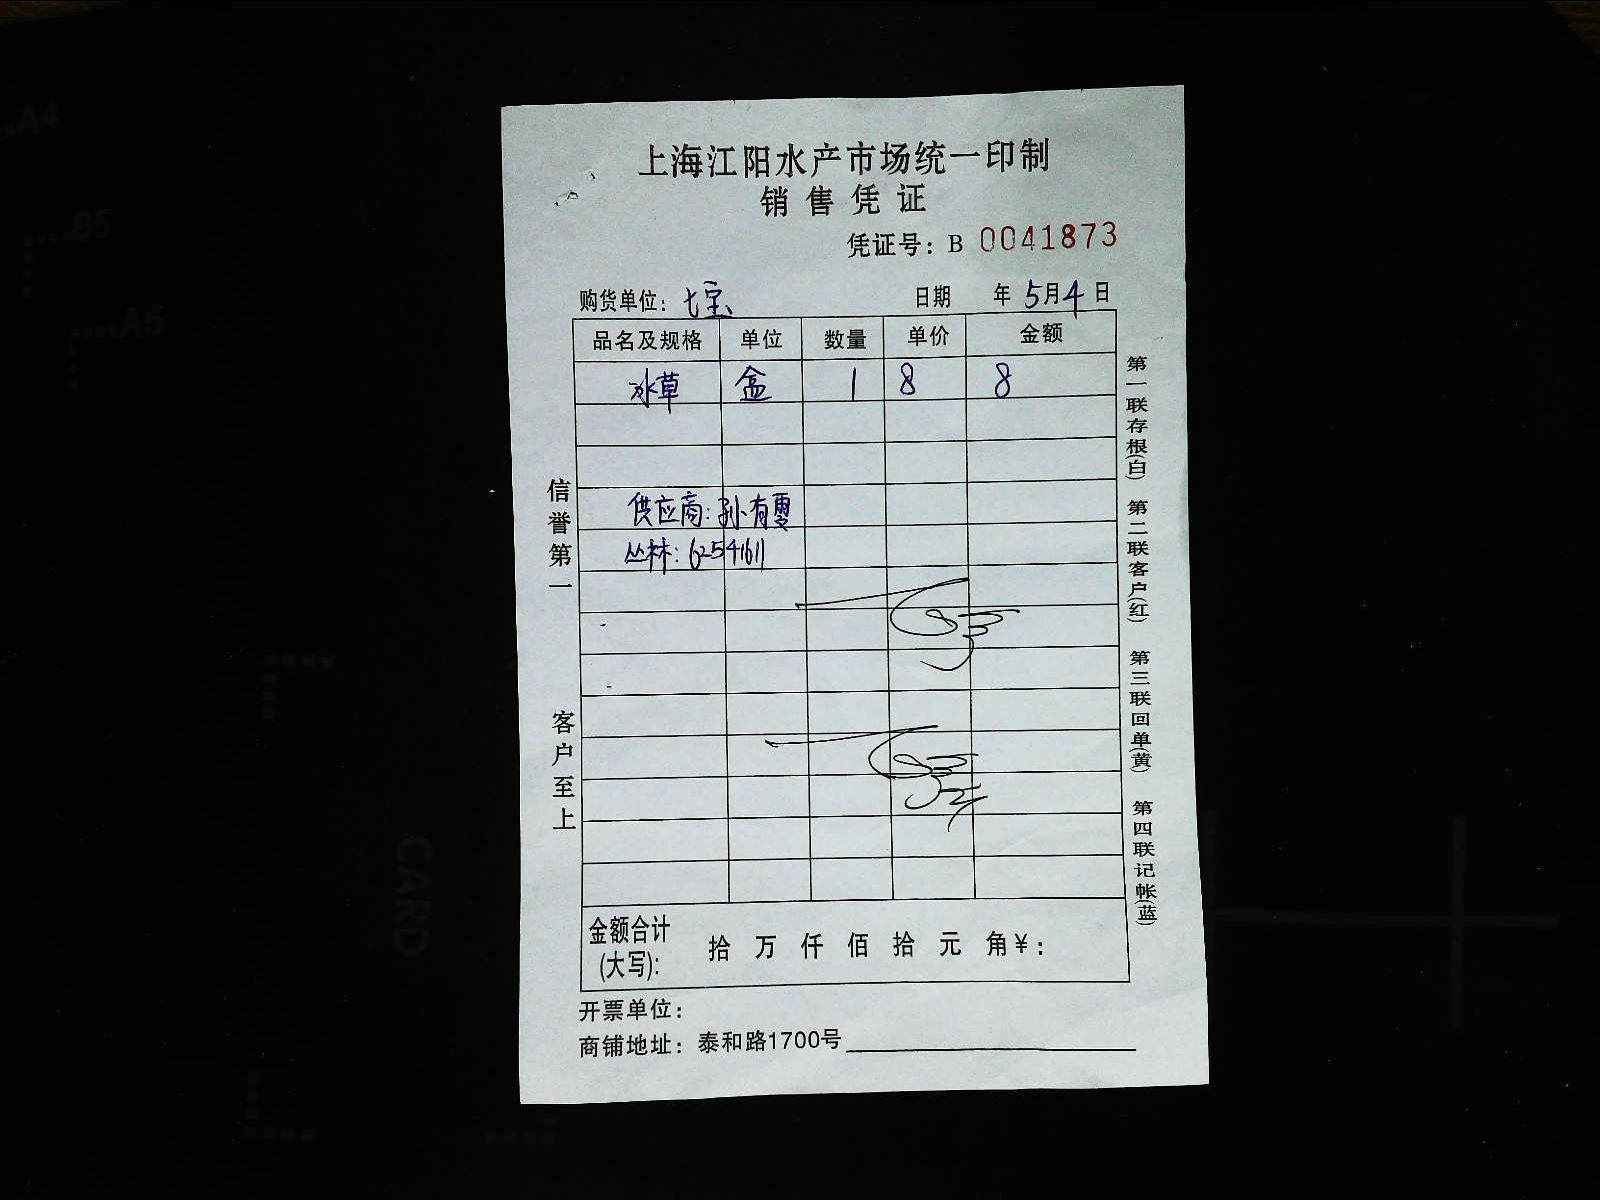 上海江阳水产市场统一印制
销售凭证
凭证号：B 0041873
购货单位：七宝 日期 年5月4日
品名及规格 单位 数量 单价 金额
冰草 盒 1 8 8
供应商：孙有雯
丛林：62541611
信誉第一
客户至上
第一联存根(白)
第二联客户(红)
第三联回单(黄)
第四联记帐(蓝)
金额合计
(大写)： 拾 万 仟 佰 拾 元 角￥：
开票单位：
商铺地址：泰和路1700号
A4
B5
A5
CARD